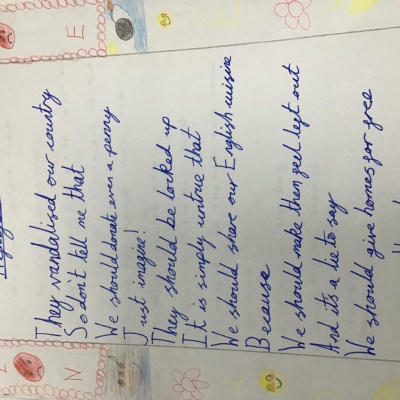 They vandalised our country
So don't tell me that
We should donate even a penny
Just imagine!
They should be locked up
It is simply untrue that
We should share our English cuisine
Because
We should make them feel left out
And it's a lie to say
We should give homes for free
E
N